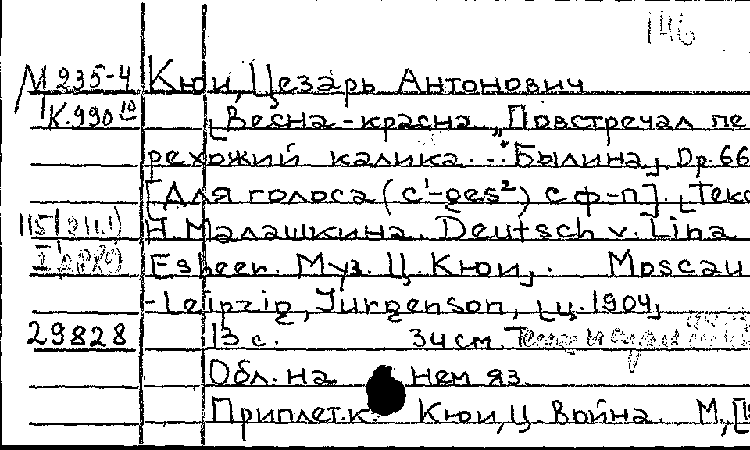 146
М 235-4 Кюи, Цезарь Антонович
К.990 Весна-красна „Повстречал пе
рехожий калика...“ Былина, Op. 66
[Для голоса (c¹-ges²) с ф-п]. [Текс
Н. Малашкина. Deutsch v. Lina
Esbeer. Муз. Ц. Кюи,. Moscau
-Leipzig, Jurgenson, [ц. 1904]
29828 13 с. 34 см.
Обл. на нем яз.
Приплет. к: Кюи, Ц. Война. М,